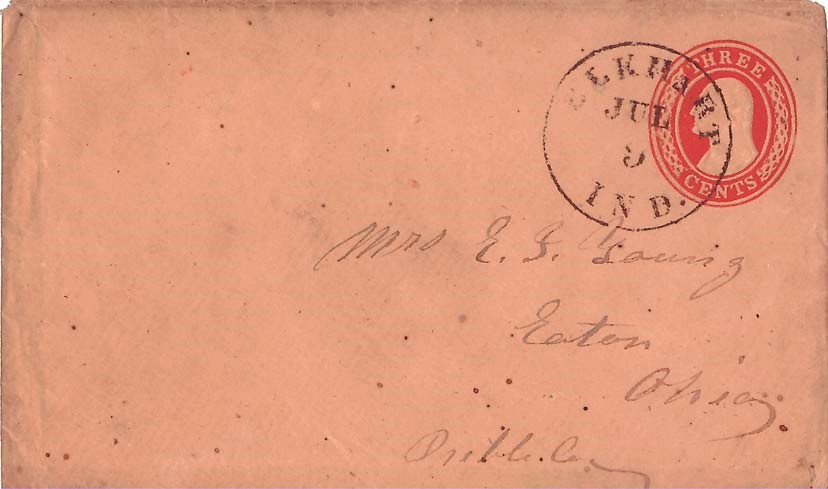 THREE
CENTS
ELKHART
JUL
9
IND.
Mrs E. F. Young
Eaton
Ohio
Preble Co.